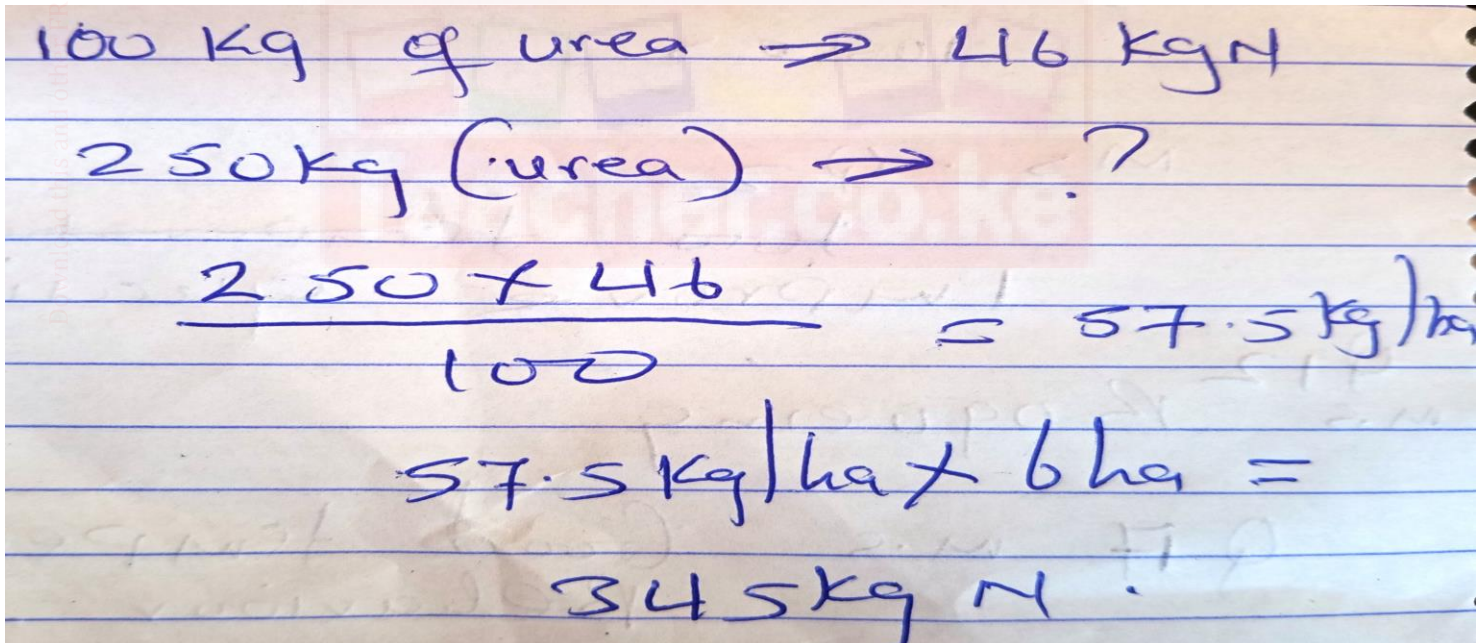 100 Kg of urea → 46 KgN
250kg (urea) → ?
250 × 46
100
= 57.5 kg/ha
57.5 kg/ha × 6 ha =
345kg N.